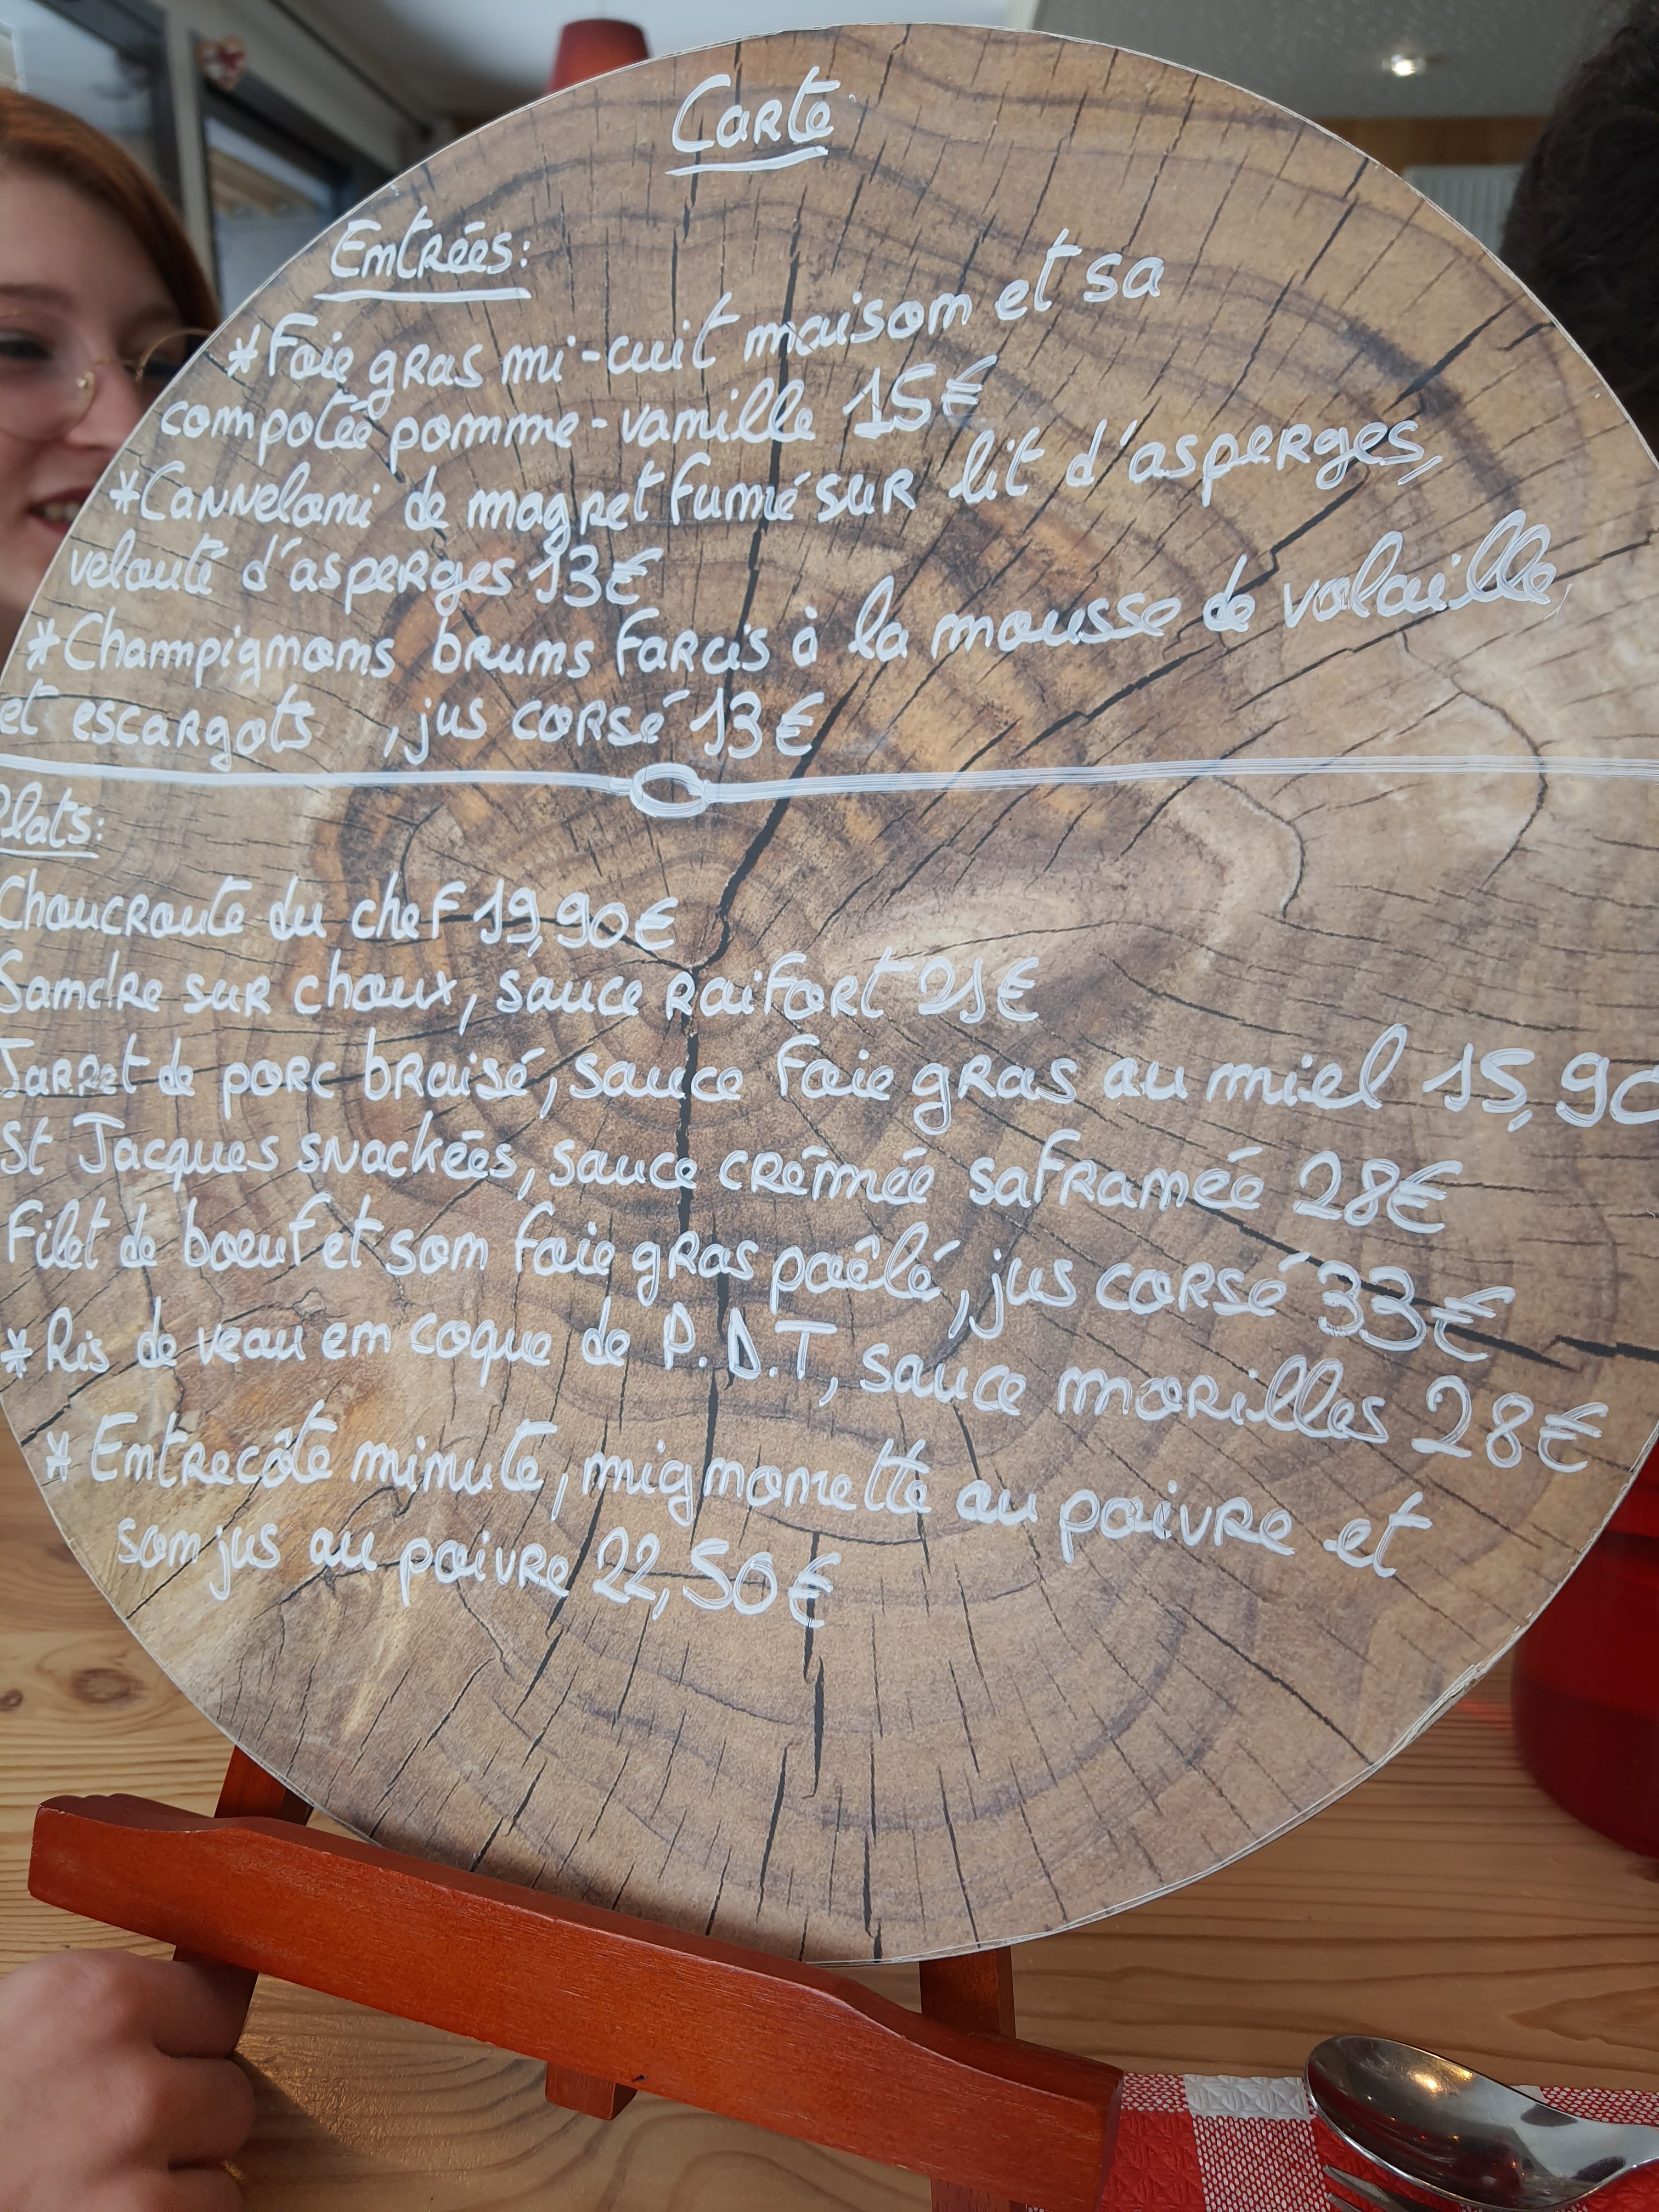 Carte
Entrées:
*Foie gras mi-cuit maison et sa
compotée pomme-vanille 15€
*Canneloni de magret fumé sur lit d'asperges,
velouté d'asperges 13€
*Champignons bruns farcis à la mousse de volaille
et escargots , jus corsé 13€
Plats:
Choucroute du chef 19,90€
Sandre sur choux, sauce raifort 21€
Jarret de porc braisé, sauce foie gras au miel 15,90
St Jacques snackées, sauce crêmée safranée 28€
Filet de boeuf et son foie gras poêlé, jus corsé 33€
*Ris de veau en coque de P.D.T, sauce morilles 28€
* Entrecôte minute, mignonette au poivre et
son jus au poivre 22,50€